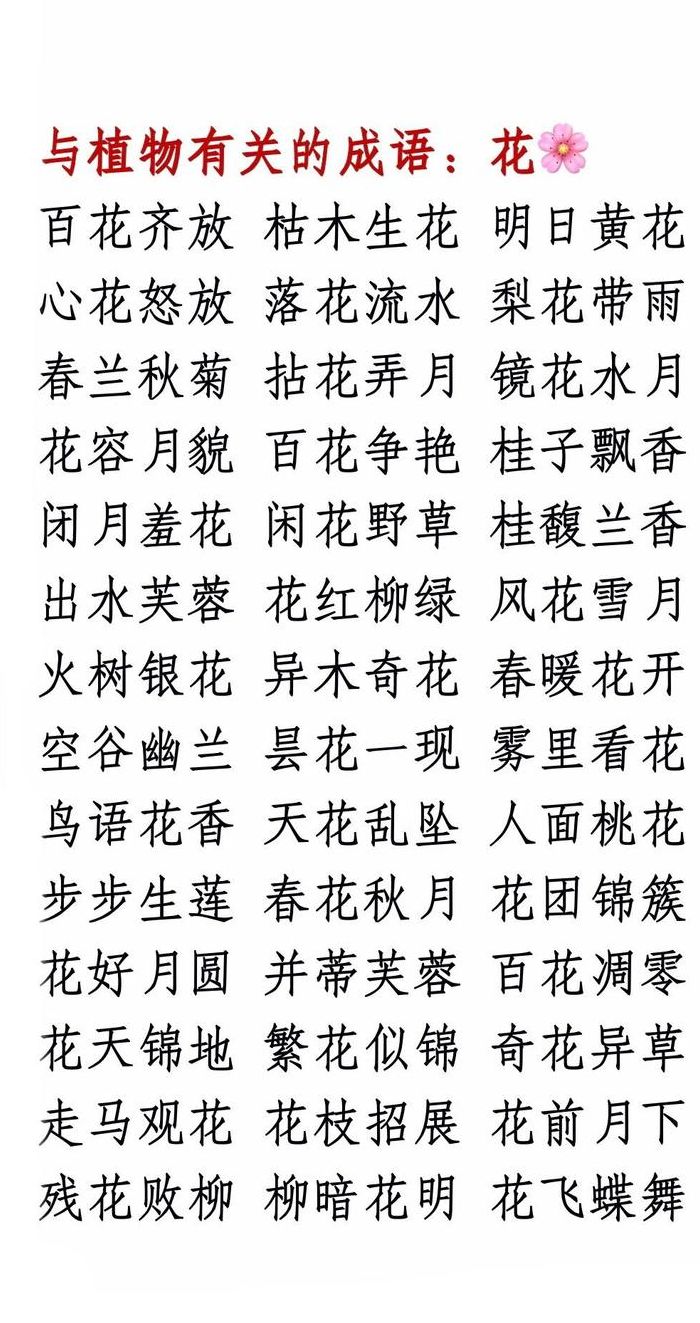 与植物有关的成语：花🌸
百花齐放 枯木生花 明日黄花
心花怒放 落花流水 梨花带雨
春兰秋菊 拈花弄月 镜花水月
花容月貌 百花争艳 桂子飘香
闭月羞花 闲花野草 桂馥兰香
出水芙蓉 花红柳绿 风花雪月
火树银花 异木奇花 春暖花开
空谷幽兰 昙花一现 雾里看花
鸟语花香 天花乱坠 人面桃花
步步生莲 春花秋月 花团锦簇
花好月圆 并蒂芙蓉 百花凋零
花天锦地 繁花似锦 奇花异草
走马观花 花枝招展 花前月下
残花败柳 柳暗花明 花飞蝶舞